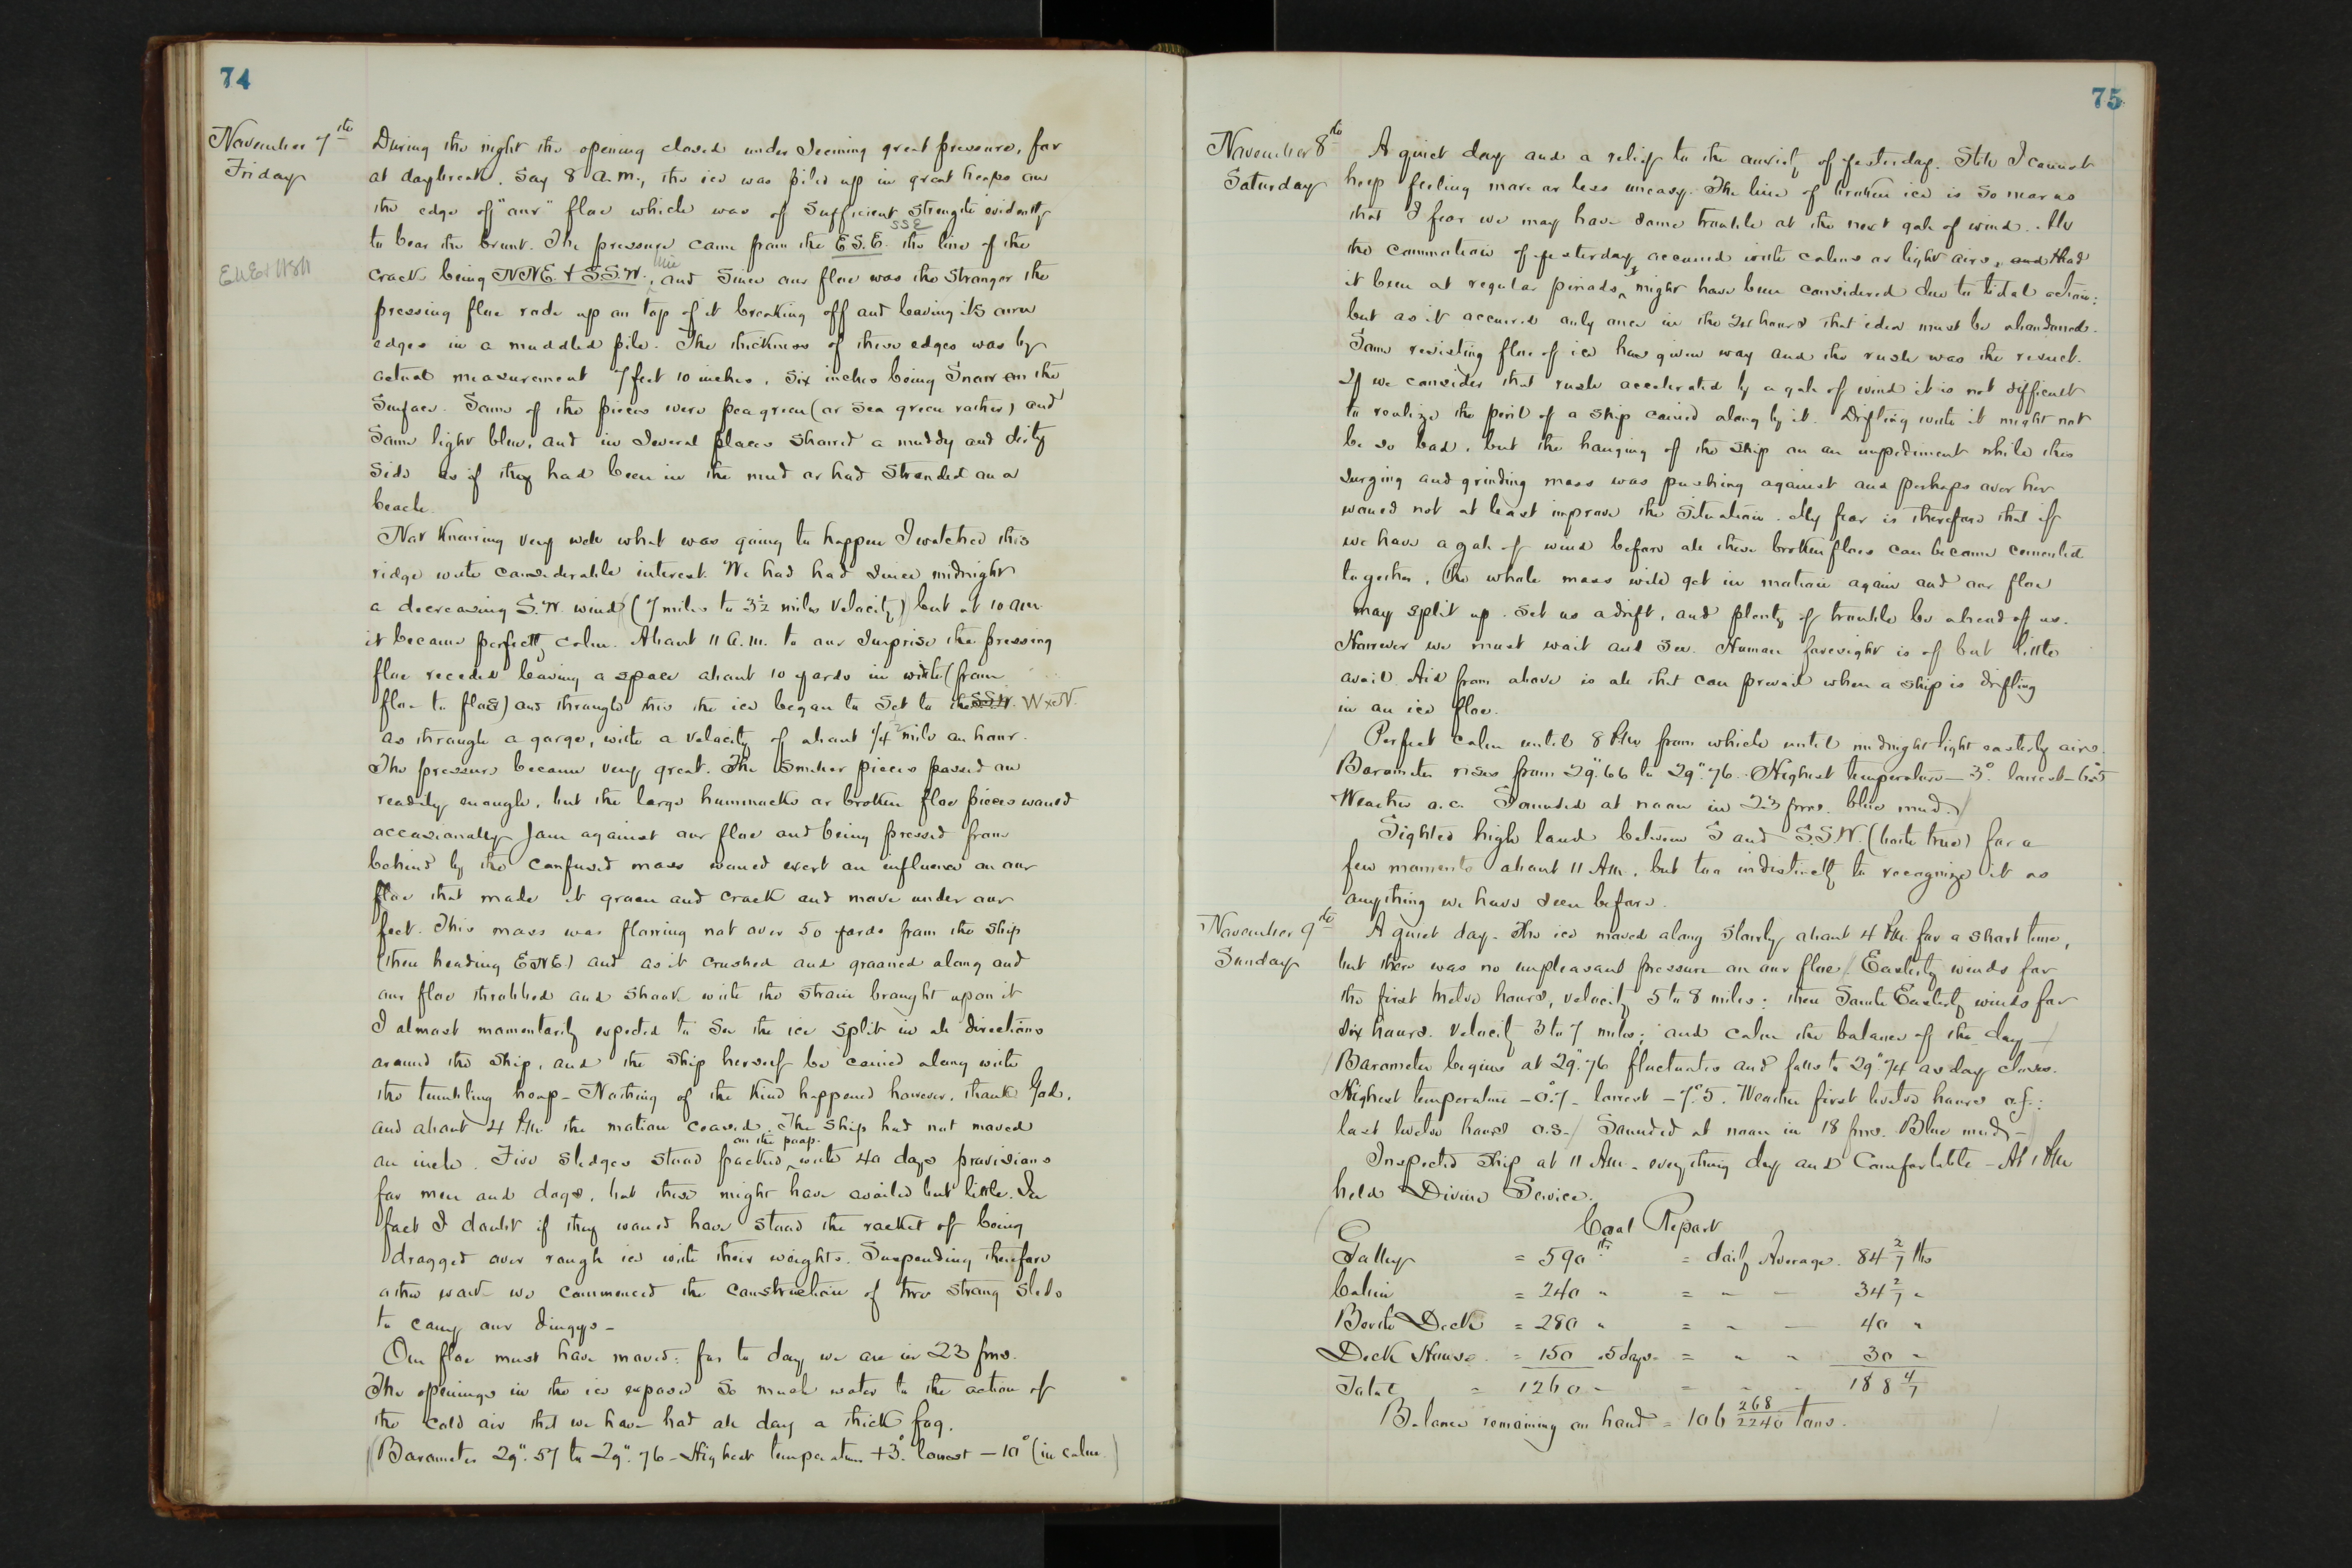 74
November 7th
Friday
During the night the opening closed under seeming great pressure, for
at daybreak, say 8 a.m., the ice was piled up in great heaps on
the edge of "our" floe which was of sufficient strength evidently
SSE
to bear the brunt. The pressure came from the E.S.E. the line of the
crack being NNE. & S.S.W. and since our floe was the stronger the
pressing floe rode up on top of it breaking off and leaving its own
edges in a muddled pile. The thickness of these edges was by
actual measurement 7 feet 10 inches, six inches being snow on the
surface. Some of the pieces were pea green (or sea green rather) and
some light blue, and in several places showed a muddy and dirty
side as if they had been in the mud or had stranded on a
beach.
Not knowing very well what was going to happen I watched this
ridge with considerable interest. We had had since midnight
a decreasing S.W. wind (7 miles to 3½ miles velocity) but at 10 am
it became perfectly calm. About 11 a.m. to our surprise the pressing
floe receded leaving a space about 10 yards in width (from
floe to floe) and through this the ice began to set to the S.S.W. WxN.
as through a gorge, with a velocity of about 1/4 mile an hour.
The pressure became very great. The smaller pieces passed on
readily enough, but the large hummocks or broken floe pieces would
occasionally jam against our floe and being pressed from
behind by the confused mass would exert an influence on our
floe that made it groan and crack and move under our
feet. This mass was flowing not over 50 yards from the ship
(then heading ENE) and as it crushed and groaned along and
our floe throbbed and shook with the strain brought upon it
I almost momentarily expected to see the ice split in all directions
around the ship, and the ship herself be carried along with
the tumbling heap - Nothing of the kind happened however, thank God,
and about 4 P.M. the motion ceased. The ship had not moved
on the poop.
an inch. Five sledges stood packed with 40 days provisions
for men and dogs, but these might have availed but little. In
fact I doubt if they would have stood the racket of being
dragged over rough ice with their weights. Suspending therefore
other work we commenced the construction of two strong sleds
to carry our dingys -
Our floe must have moved: for to day we are in 23 fms.
The openings in the ice exposed so much water to the action of
the cold air that we have had all day a thick fog.
(Barometer 29".57 to 29".76 - Highest temperature +3°. lowest -10° (in calm.)
75
November 8th
Saturday
A quiet day and a relief to the anxiety of yesterday. Still I cannot
keep feeling more or less uneasy. The line of broken ice is so near us
that I fear we may have some trouble at the next gale of wind. All
the commotion of yesterday occurred with calms or light airs, and Had
it been at regular periods, might have been considered due to tidal action:
but as it occurred only once in the 24 hours that idea must be abandoned.
Some resisting floe of ice has given way and the rush was the result.
If we consider that rush accelerated by a gale of wind it is not difficult
to realize the peril of a ship carried along by it. Drifting with it might not
be so bad, but the hanging of the ship on an impediment while this
surging and grinding mass was pushing against and perhaps over her
would not at least improve the situation. My fear is therefore that if
we have a gale of wind before all these broken floes can become cemented
together, the whole mass will get in motion again and our floe
may split up. Set us adrift, and plenty of trouble be ahead of us.
However we must wait and see. Human foresight is of but little
avail. Aid from above is all that can prevail when a ship is drifting
in an ice floe.
Perfect calm until 8 P.M. from which until midnight light easterly airs.
Barometer rises from 29".66 to 29".76. Highest temperature -3°. lowest -6°.5
Weather o.c. Sounded at noon in 23 fms. blue mud.)
Sighted high land between S and S.S.W. (both true) for a
few moments about 11 A.M., but too indistinctly to recognize it as
anything we have seen before.
November 9th
Sunday
A quiet day. The ice moved along slowly about 4 P.M. for a short time,
but there was no unpleasant pressure on our floe. Easterly winds for
the first twelve hours, velocity 5 to 8 miles: then South Easterly winds for
six hours. velocity 3 to 7 miles; and calm the balance of the day -
Barometer begins at 29".76 fluctuates and falls to 29".74 as day closes.
Highest temperature -0°.7 - lowest -7°.5. Weather first twelve hours o.f.:
last twelve hours o.s. - Sounded at noon in 18 fms. Blue mud -
Inspected ship at 11 A.M. - everything dry and comfortable - At 1 P.M.
held Divine Service.
Coal Report
Galley = 590 lbs = daily Average. 84 2/7 lbs
Cabin = 240 " = " - 34 2/7 "
Berth Deck = 280 " = " - 40 "
Deck House = 150 . 5 days - = " " 30 "
Total = 1260 - = - - 188 4/7
Balance remaining on hand = 106 268/2240 tons.